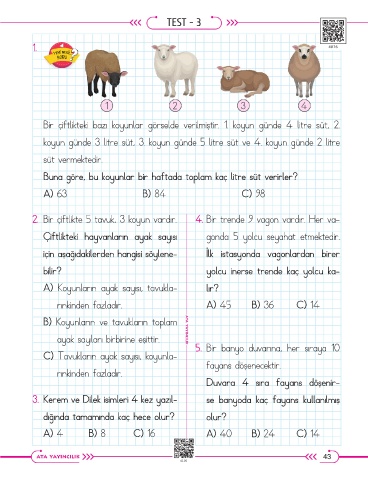 TEST - 3
1.
1 2 3 4
Bir çiftlikteki bazı koyunlar görselde verilmiştir. 1. koyun günde 4 litre süt, 2.
koyun günde 3 litre süt, 3. koyun günde 5 litre süt ve 4. koyun günde 2 litre
süt vermektedir.
Buna göre, bu koyunlar bir haftada toplam kaç litre süt verirler?
A) 63 B) 84 C) 98
2. Bir çiftlikte 5 tavuk, 3 koyun vardır.
Çiftlikteki hayvanların ayak sayısı
için aşağıdakilerden hangisi söylene-
bilir?
A) Koyunların ayak sayısı, tavukla-
rınkinden fazladır.
B) Koyunların ve tavukların toplam
ayak sayıları birbirine eşittir.
C) Tavukların ayak sayısı, koyunla-
rınkinden fazladır.
3. Kerem ve Dilek isimleri 4 kez yazıl-
dığında tamamında kaç hece olur?
A) 4 B) 8 C) 16
4. Bir trende 9 vagon vardır. Her va-
gonda 5 yolcu seyahat etmektedir.
İlk istasyonda vagonlardan birer
yolcu inerse trende kaç yolcu ka-
lır?
A) 45 B) 36 C) 14
5. Bir banyo duvarına, her sıraya 10
fayans döşenecektir.
Duvara 4 sıra fayans döşenir-
se banyoda kaç fayans kullanılmış
olur?
A) 40 B) 24 C) 14
ATA YAYINCILIK
43